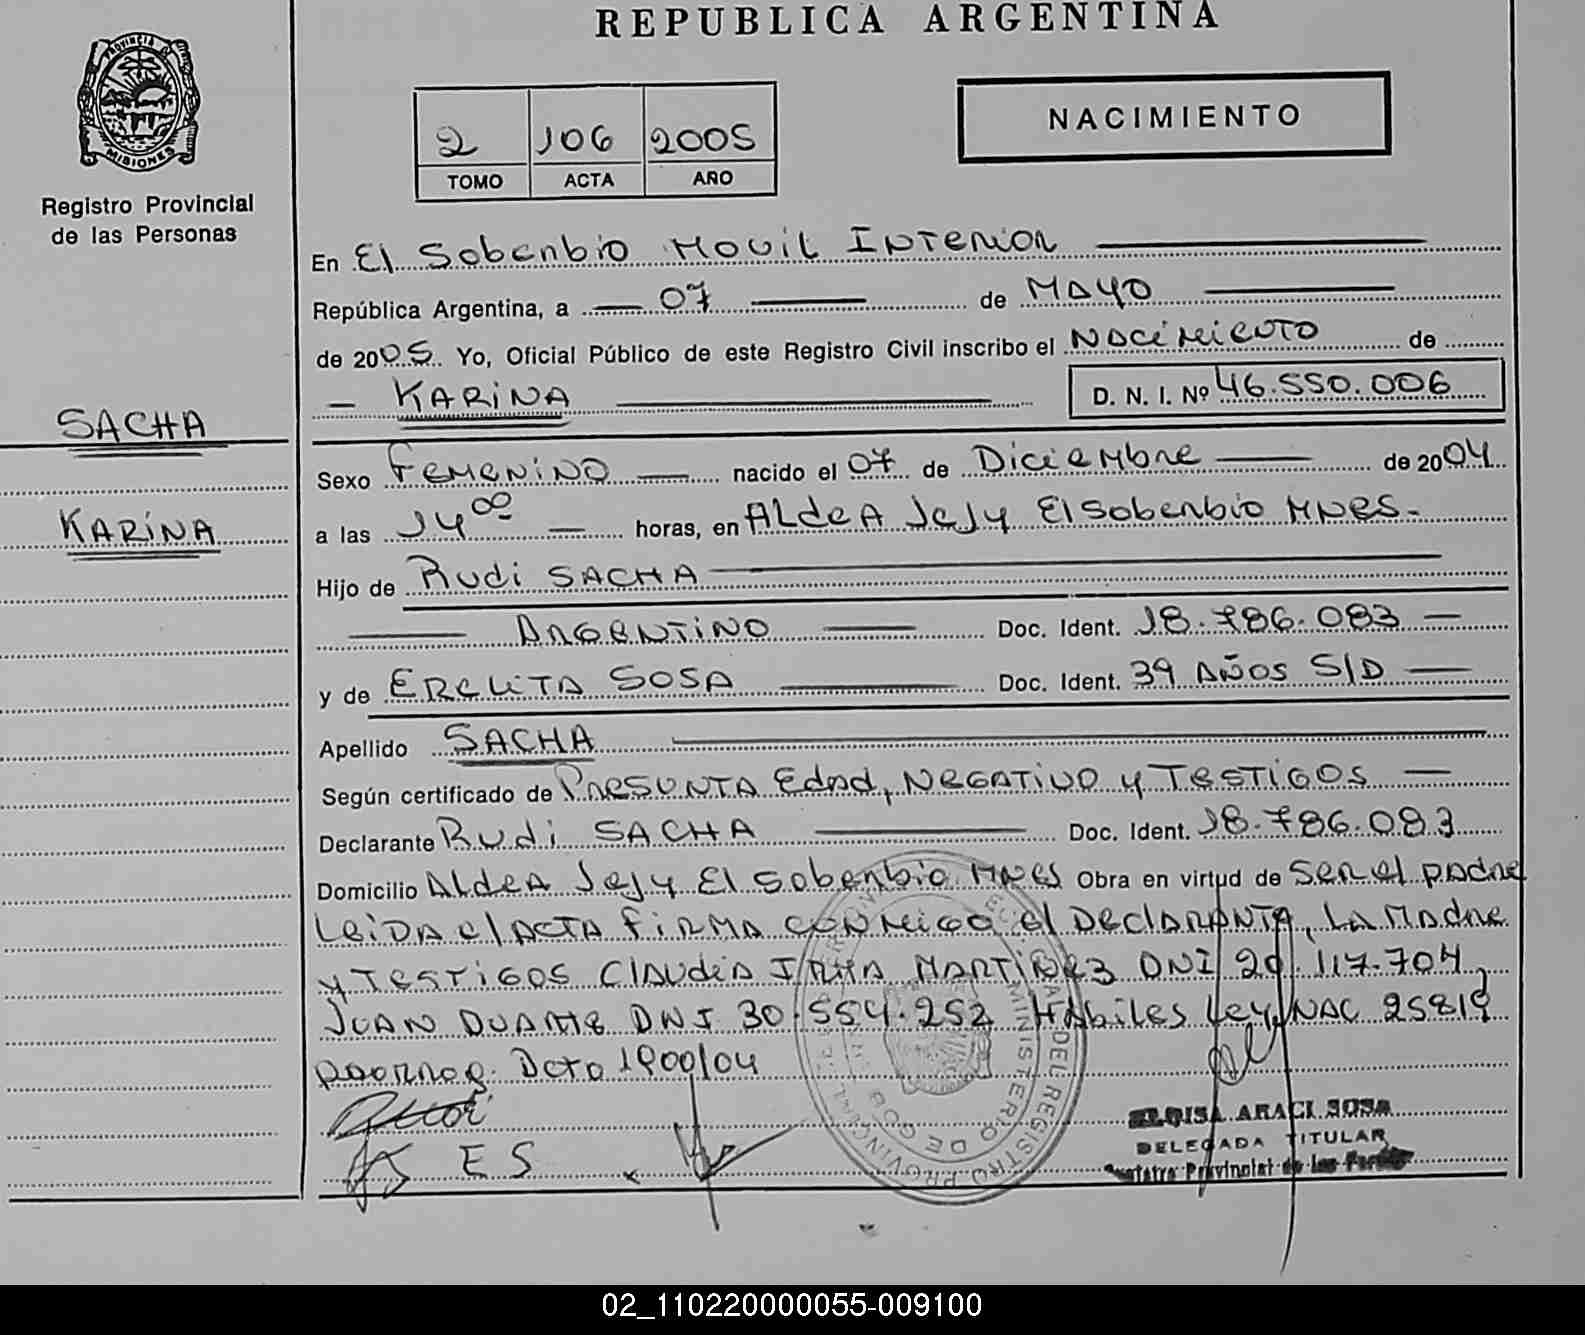 REPUBLICA ARGENTINA
PROVINCIA
MISIONES
Registro Provincial
de las Personas
2 106 2005
TOMO ACTA AÑO
NACIMIENTO
En El Soberbio Movil Interior
República Argentina, a 07 de Mayo
de 2005. Yo, Oficial Público de este Registro Civil inscribo el Nacimiento de
KARINA D. N. I. Nº 46.550.006
SACHA
KARINA
Sexo Femenino nacido el 07 de Diciembre de 2004
a las 14 00 horas, en Aldea Jejy El Soberbio Mnes.
Hijo de Rudi SACHA
Argentino Doc. Ident. 18.786.083
y de Erclita Sosa Doc. Ident. 39 Años S/D
Apellido SACHA
Según certificado de Presunta Edad, Negativo y Testigos
Declarante Rudi SACHA Doc. Ident. 18.786.083
Domicilio Aldea Jejy El Soberbio Mnes Obra en virtud de Ser el padre
Leida el Acta firma conmigo el Declarante, La Madre
y Testigos Claudia Irma Martinez DNI 20.117.704,
Juan Duarte DNI 30.554.252 Habiles Ley NAC 25819
Dcto 1900/04
E S
ELOISA ARACI SOSA
DELEGADA TITULAR
Registro Provincial de las Personas
02_110220000055-009100